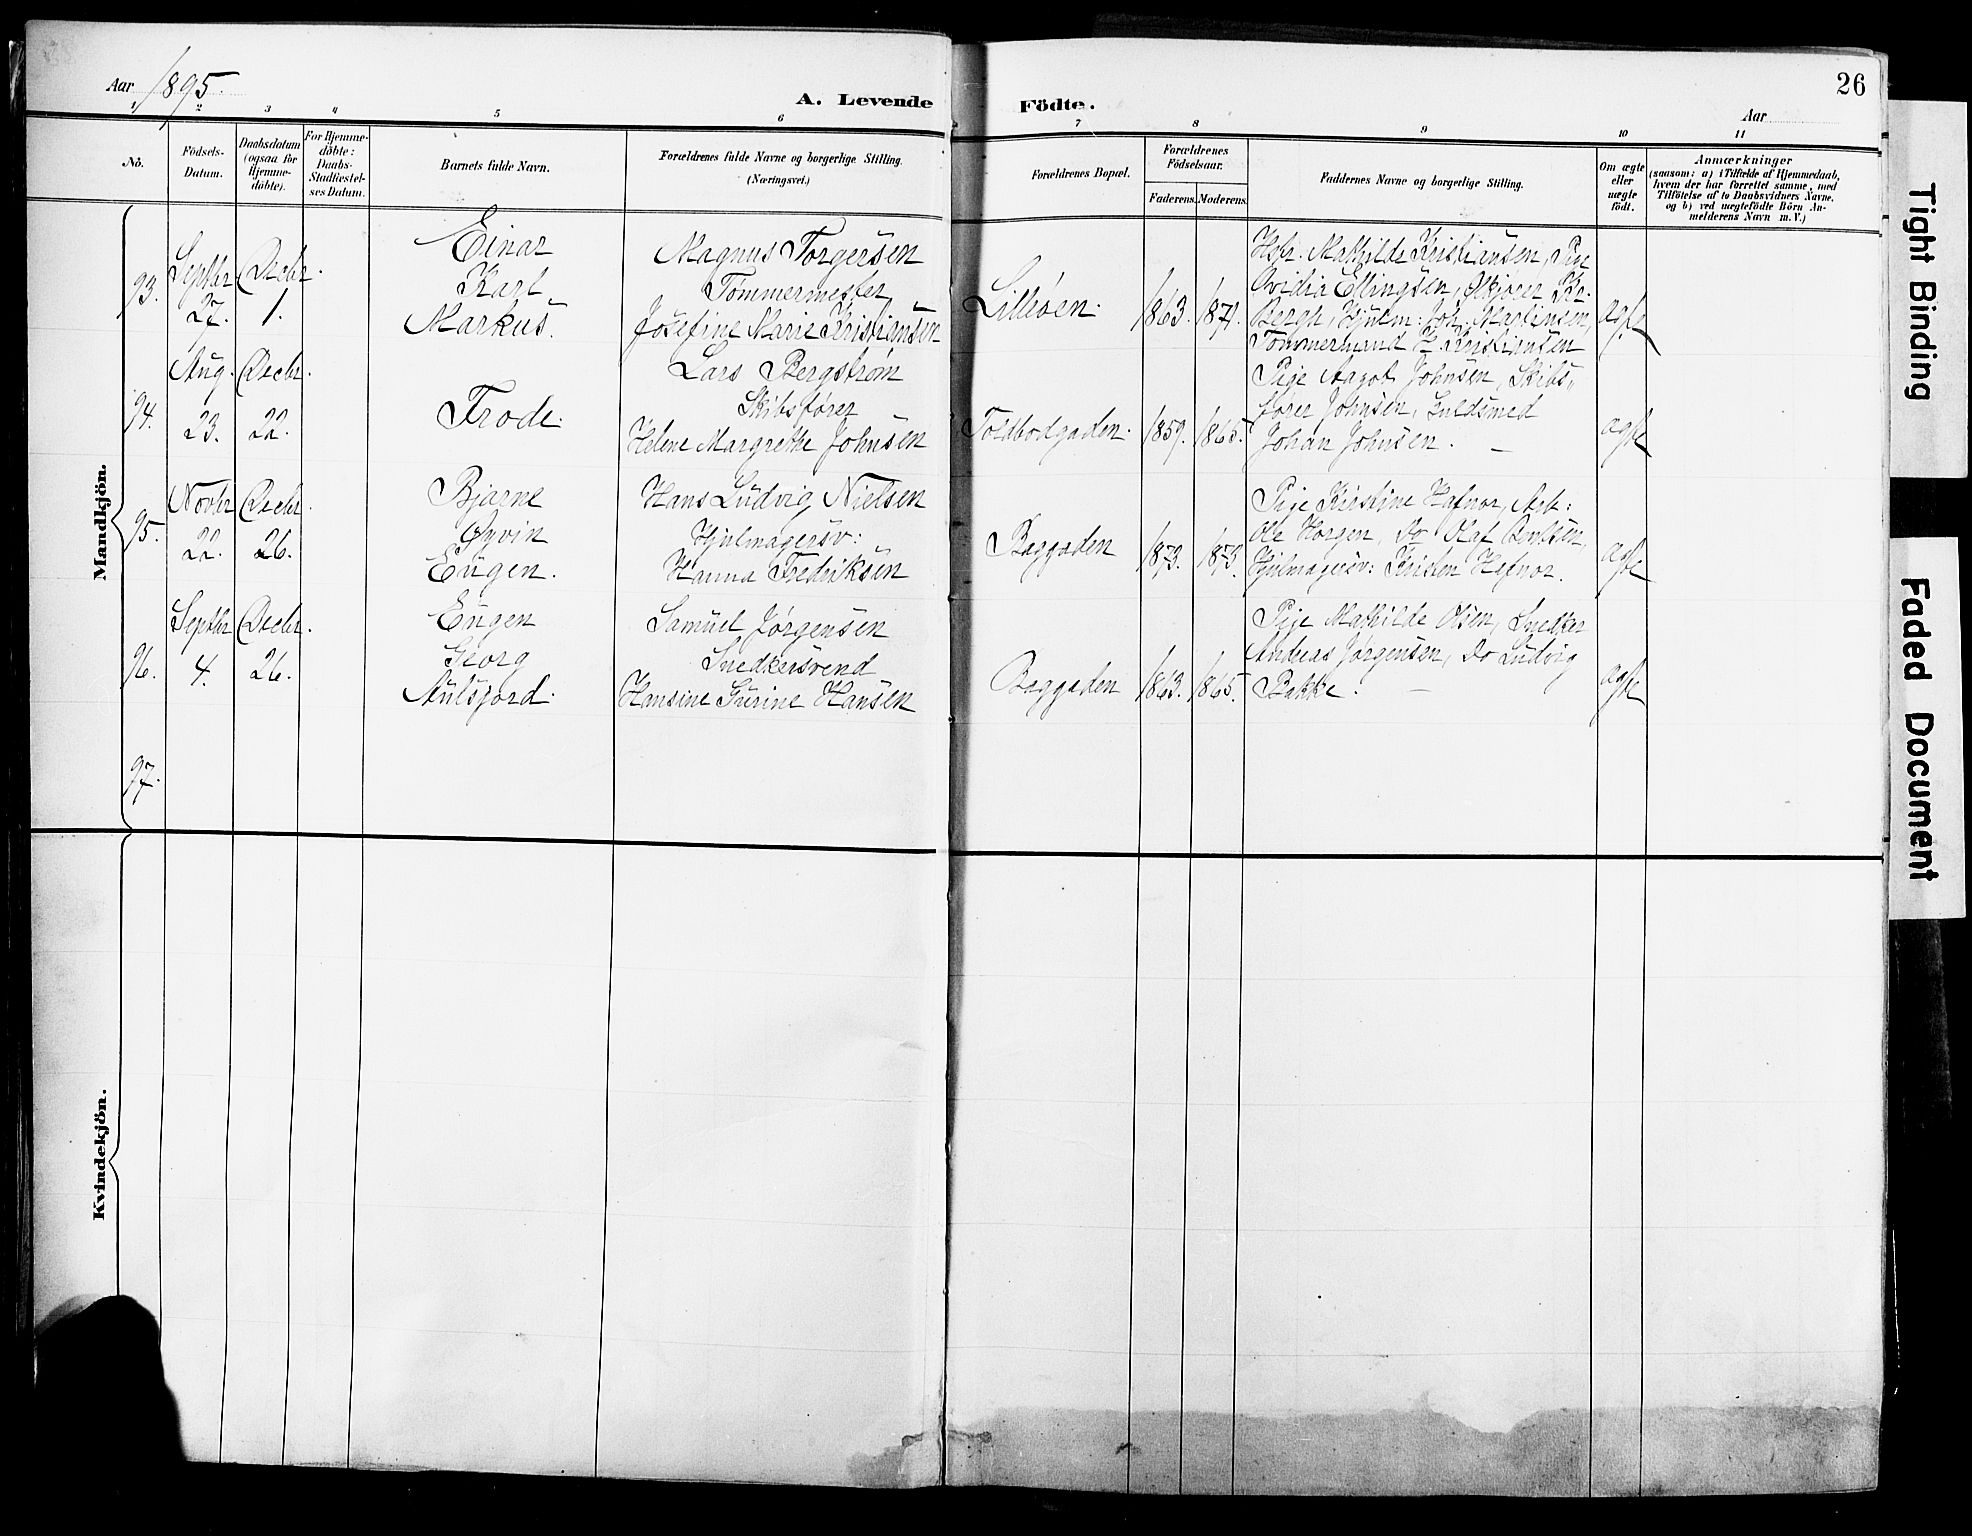 Aar 1895.
A. Levende Födte.
26
Aar
1 2 3 4 5 6 7 8 9 10 11
No.
Födsels-
Datum.
Daabsdatum
(ogsaa for
Hjemme-
döbte).
For Hjemme-
döbte:
Daabs-
Stadfæstel-
ses Datum.
Barnets fulde Navn.
Forældrenes fulde Navne og borgerlige Stilling.
(Næringsvei.)
Forældrenes Bopæl.
Forældrenes
Födselsaar.
Faderens.
Moderens.
Faddernes Navne og borgerlige Stilling.
Om ægte
eller
uægte
födt.
Anmærkninger
(saasom: a) i Tilfælde af Hjemmedaab,
hvem der har forrettet samme, med
Tilföielse af to Daabsvidners Navne,
og b) ved uægtefödte Börn An-
melderens Navn m. V.)
Mandkjön.
93.
Septbr
27.
Decbr.
1.
Einar
Karl
Markus.
Magnus Torgersen
Tømmermester
Josefine Marie Kristiansen
Lilleøen.
1863.
1871.
Hsfr. Mathilde Kristiansen, Pige
Ovidia Ellingsen, Ølkjører Kr.
Bergh, Hjulm: Joh. Martinsen,
Tømmermand H. Kristiansen
ægte
94.
Aug.
23.
Decbr.
22.
Frode.
Lars Bergstrøm
Skibsfører
Helene Margrethe Johnsen
Toldbodgaden.
1859.
1865.
Pige Aagot Johnsen, Skibs-
fører Johnsen, Guldsmed
Johan Johnsen. —
ægte
95.
Novbr
22.
Decbr.
26.
Bjarne
Øyvin
Eugen.
Hans Ludvig Nielsen
Hjulmagersv:
Hanna Fredriksen
Baggaden
1873.
1873.
Pige Kirstine Hafnor, Arb:
Ole Horgen, Do Olaf Berntsen,
Hjulmagersv: Kristen Hafnor.
ægte
96.
Septbr
4.
Decbr.
26.
Eugen
Georg
Aulsgord.
Samuel Jørgensen
Snedkersvend
Hansine Gurine Hansen
Baggaden
1863.
1865.
Pige Mathilde Olsen, Snedker
Andreas Jørgensen, Do Ludvig
Bakke. —
ægte
97.
Kvindekjön.
Tight Binding
Faded Document